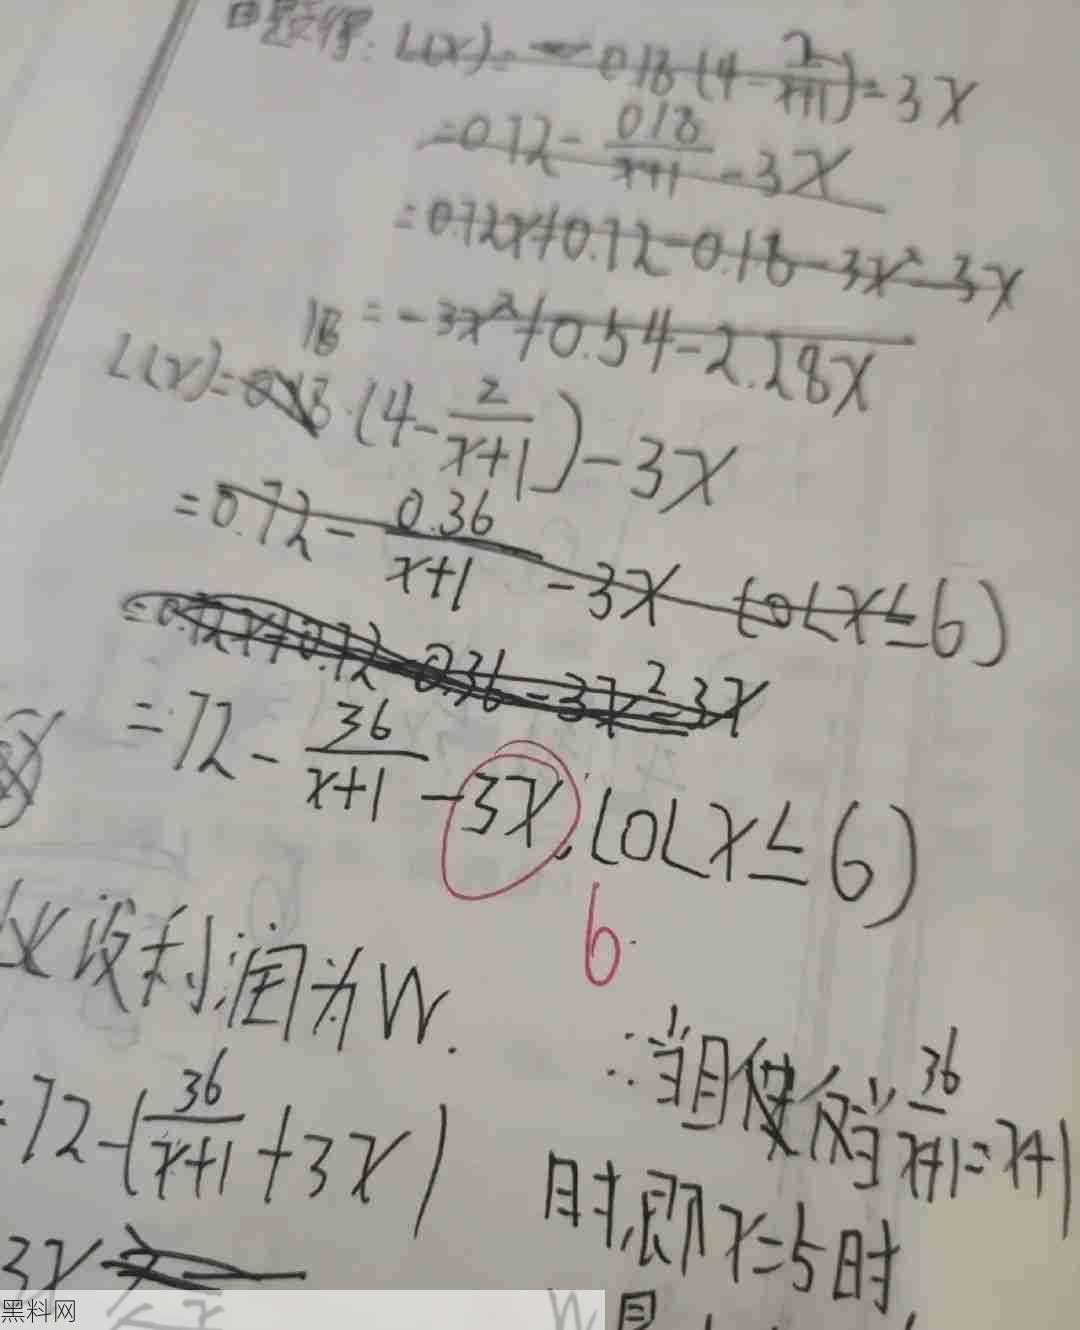 由题得: L(x)= 0.18(4-2/(x+1))-3x
=0.72-0.18/(x+1)-3x
=0.72x+0.72-0.18-3x²-3x
=-3x²+0.54-2.28x
L(x)=18(4-2/(x+1))-3x
=0.72-0.36/(x+1)-3x (0<x≤6)
=0.72x+0.72-0.36-3x²-3x
=72-36/(x+1)-3x, (0<x≤6)
6
设利润为W.
=72-(36/(x+1)+3x)
3x
∴当且仅当36/(x+1)=x+1
时,即x=5时
W
黑料网